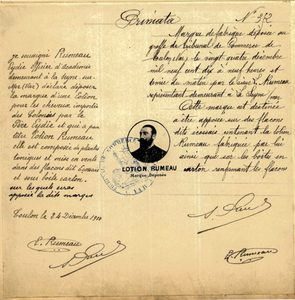 Primata
N° 372
Je soussigné Rumeau
Officier d'académie
demeurant à la Seyne-sur-
Mer (Var) déclare déposer
la marque d'une Lotion
pour les cheveux
et qui a pour
titre Lotion Rumeau
elle est composée de plantes
toniques et mise en vente
dans des flacons dits
et sous boîte carton
sur les quels sera
apposée la dite marque
Toulon le 24 Décembre 1910
E. Rumeau
Marque de fabrique déposée au
greffe du tribunal de Commerce de
le vingt quatre décembre
mil neuf cent dix à neuf heures et
demie du matin par le sieur E. Rumeau
représentant demeurant à la Seyne
Cette marque est destinée
à être apposée sur des flacons
dits contenant la lotion
Rumeau fabriquée par lui
ainsi que sur les boîtes en
carton renfermant les flacons
LOTION RUMEAU
Marque Déposée
E. Rumeau